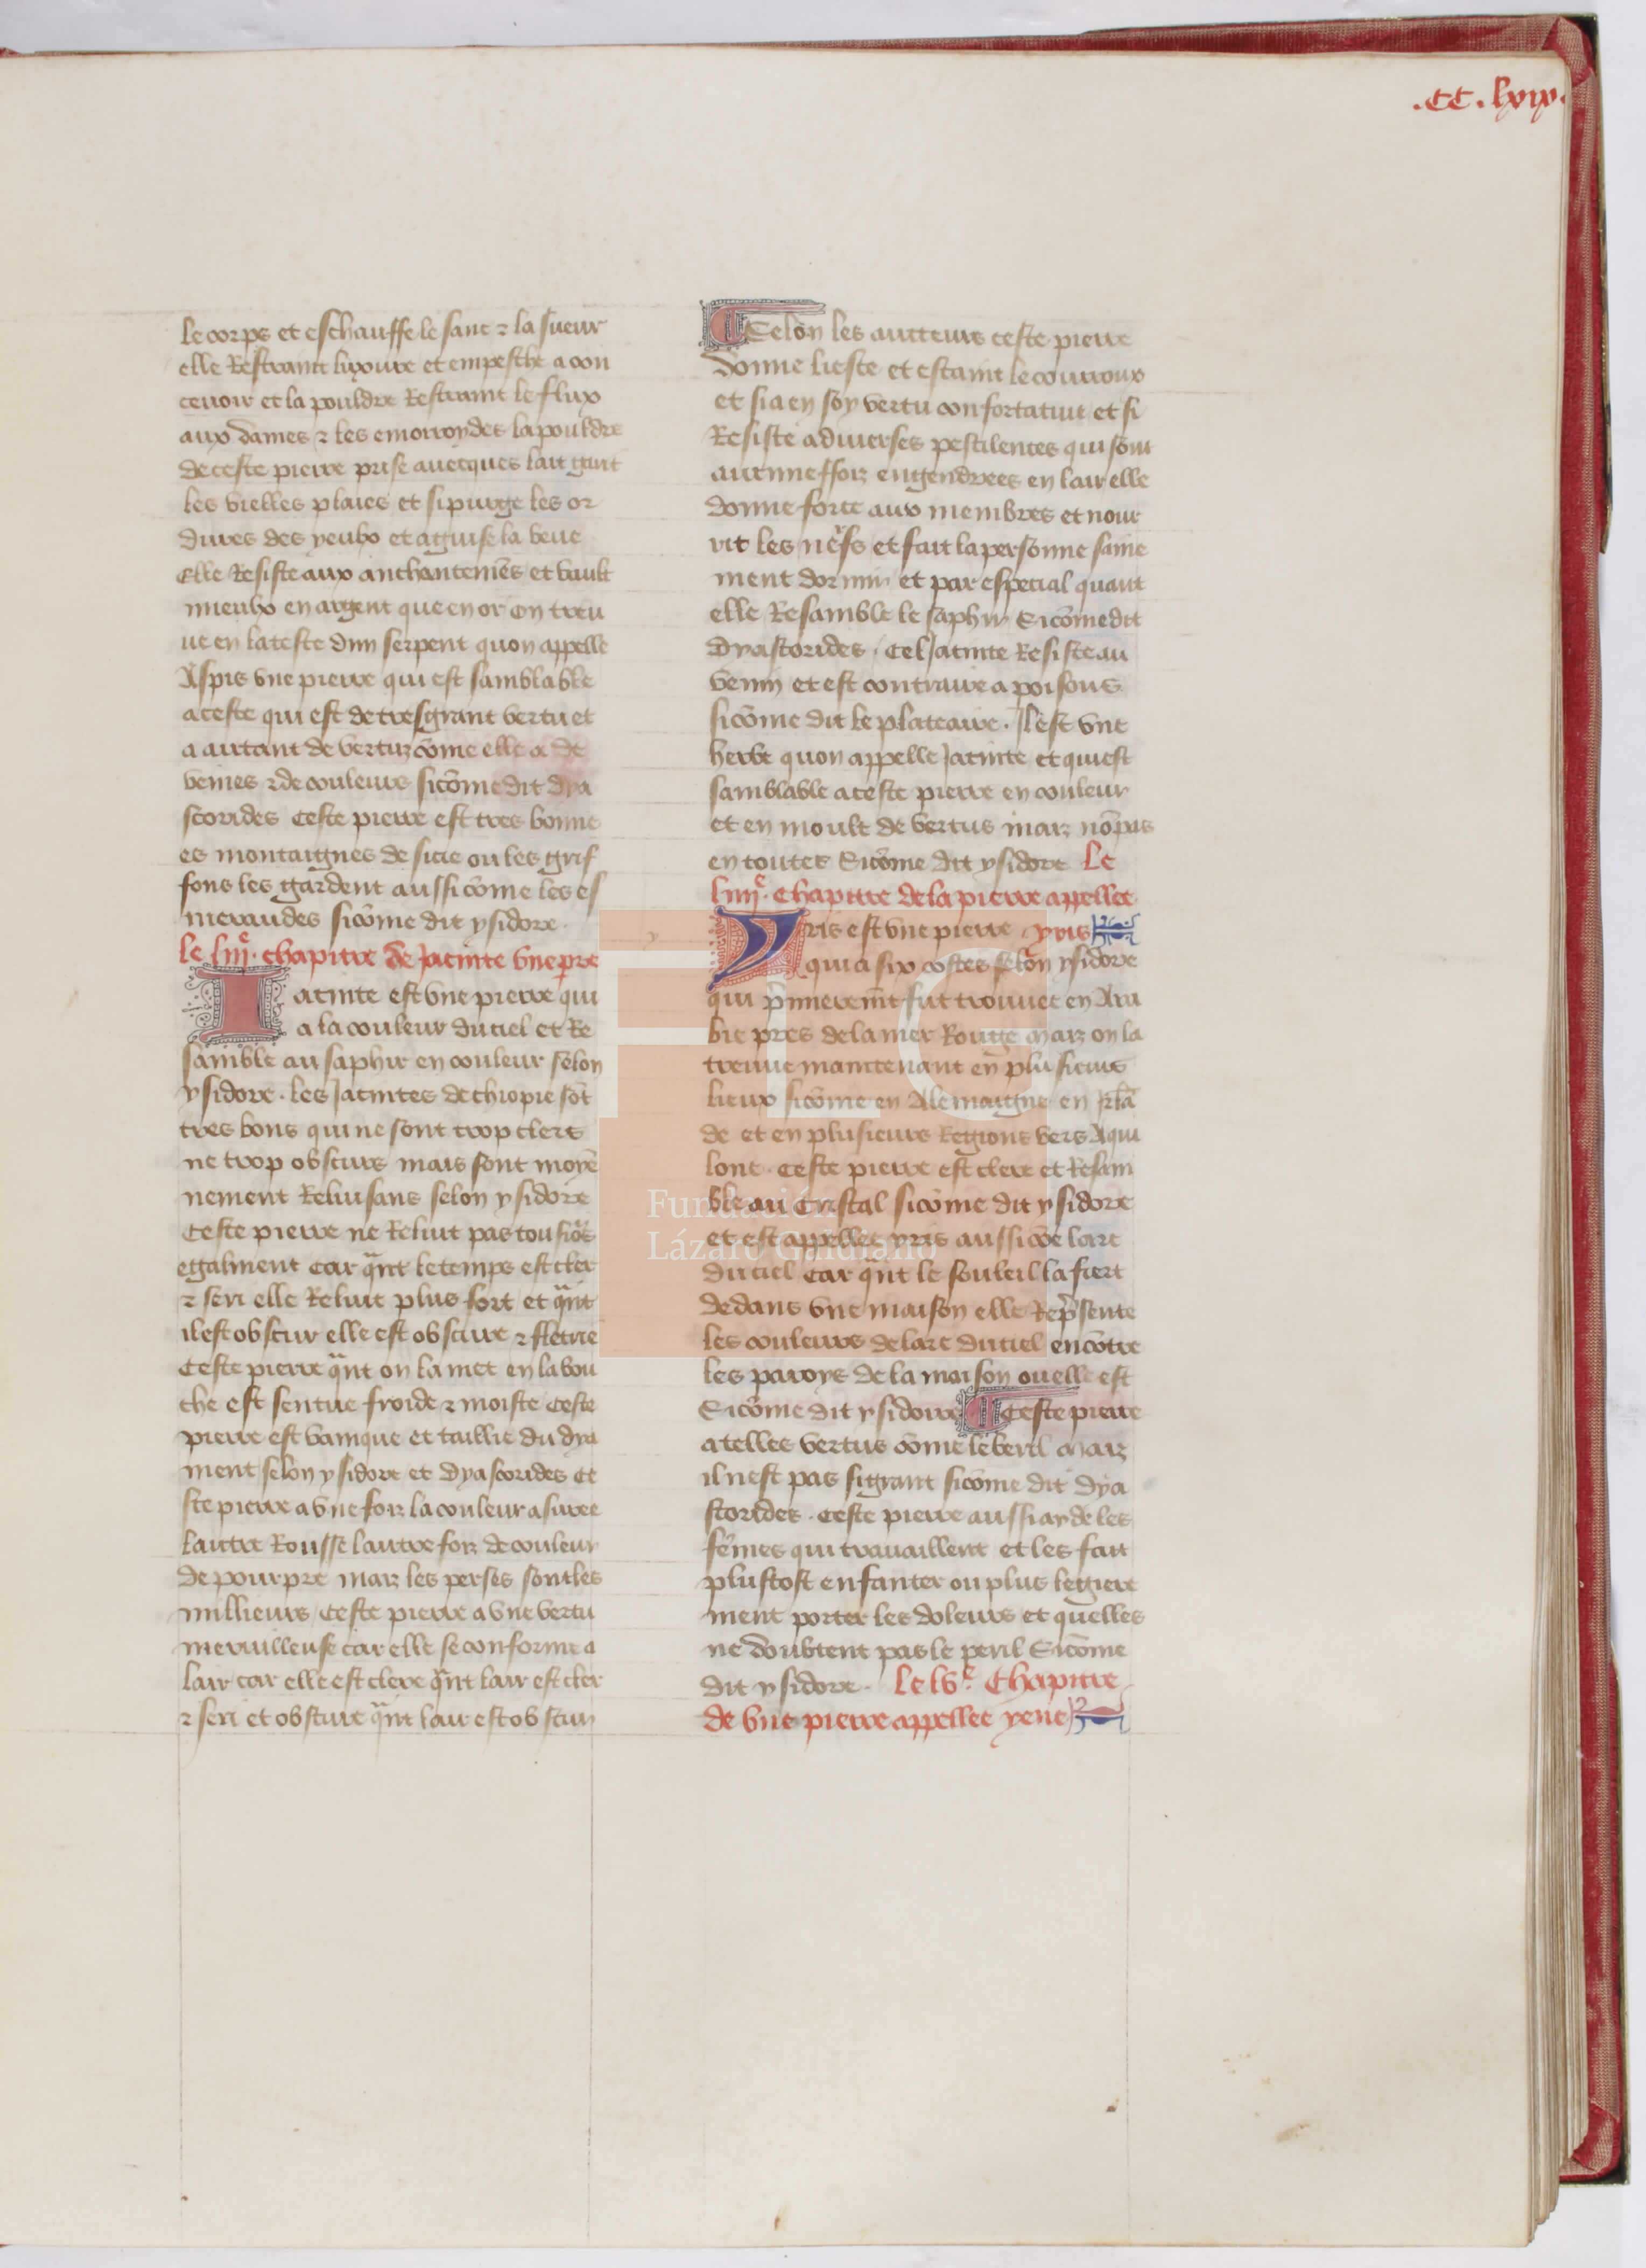 .CC.lxix.
le corps et eschauffe le sanc ⁊ la sueur
elle Restraint luxure et empesche a con
ceuoir et la pouldre Restraint le flux
aux dames ⁊ les emorroydes la pouldre
de ceste pierre prise auecques lait garit
les vielles plaies et si purge les or
dures des yeulx et aguise la veue
Elle Resiste aux anchantemẽs et vault
mieulx en argent que en or on treu
ue en la teste dun serpent quon appelle
Aspis vne pierre qui est samblable
a ceste qui est de tresgrant vertu et
a autant de vertuz cõme elle a de
veines ⁊ de couleurs sicõme dit dya
scorides Ceste pierre est tres bonne
es montaignes de sicie ou les grif
fons les gardent aussi cõme les es
meraudes sicõme dit ysidore
le liiiᵉ. chapitre de Jacinte vne pre
Iacinte est vne pierre qui
a la couleur du ciel et Re
samble au saphir en couleur selon
ysidore. les Jacintes dethiopie sõt
tres bons qui ne sont trop clers
ne trop obscurs mais sont moyẽ
nement Reluisans selon ysidore
Ceste pierre ne Reluit pas tousiõrs
egalment car qᵃnt le temps est cler
⁊ seri elle Reluit plus fort et qᵃnt
il est obscur elle est obscure ⁊ flestrie
Ceste pierre qᵃnt on la met en la bou
che est sentue froide ⁊ moiste Ceste
pierre est vainque et taillie du dya
ment selon ysidore et dyascorides Ce
ste pierre a vne foiz la couleur asuree
lautre Rousse lautre foiz de couleur
de pourpre maiz les perses sont les
millieurs Ceste pierre a vne vertu
merueilleuse car elle se conforme a
lair car elle est clere qᵃnt lair est cler
⁊ seri et obscure qᵃnt lair est obscur
Selon les aucteurs ceste pierre
donne lieste et estaint le courroux
et si a en soy vertu confortatiue et si
Resiste a diuerses pestilences qui sont
aucuneffoiz engendrees en lair elle
donne force aux membres et nour
rit les nerfs et fait la personne saine
ment dormir et par especial quant
elle Resamble le saphir Sicõme dit
Dyascorides. Cel Jacinte Resiste au
venin et est contraire a poisons
sicõme dit le plateaire. Il est vne
herbe quon appelle Jacinte et qui est
samblable a ceste pierre en couleur
et en moult de vertus maiz nõ pas
en toutes Sicõme dit ysidore Le
liiiiᵉ. Chapitre de la pierre appellee
Yris est vne pierre yris
qui a six costes selon ysidore
qui p̃mieremẽt fut trouuee en Ara
bie pres de la mer Rouge maiz on la
treuue maintenant en plusieurs
lieux sicõme en Alemaigne en Irlã
de et en plusieurs Regions vers Aqui
lont. Ceste pierre est clere et Resam
ble au Cristal sicõme dit ysidore
et est appellee yris aussi cõe larc
du ciel car qᵃnt le souleil la fiert
dedans vne maison elle Rep̃sente
les couleurs de larc du ciel encõtre
les paroys de la maison ou elle est
Sicõme dit ysidore Ceste pierre
a telles vertus cõme le beril maiz
il nest pas si grant sicõme dit dya
scorides. Ceste pierre aussi ayde les
fẽmes qui trauaillent et les fait
plustost enfanter ou plus legiere
ment porter les doleurs et quelles
ne doubtent pas le peril Sicõme
dit ysidore. Le lvᵉ. Chapitre
de vne pierre appellee yene
Fundación
Lázaro Galdiano